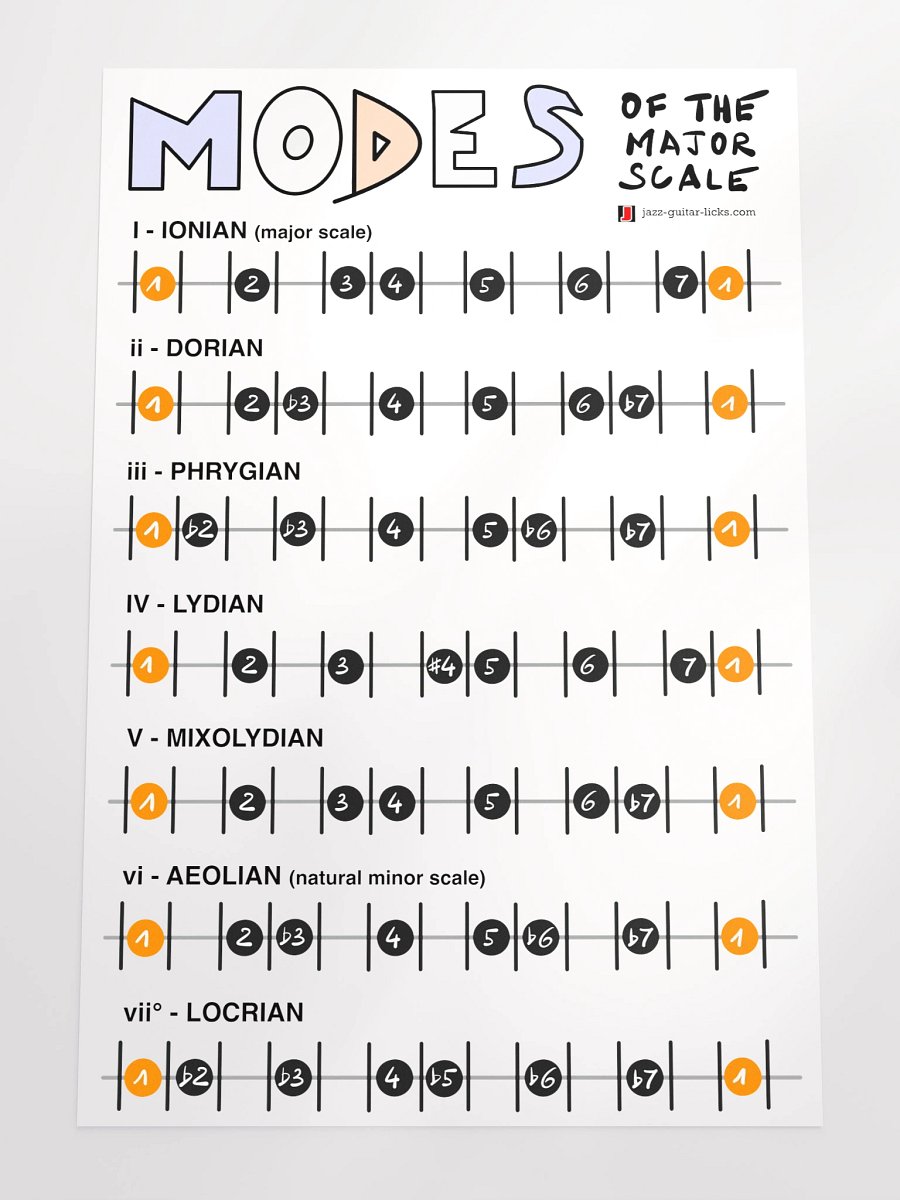 MODES
OF THE
MAJOR
SCALE
jazz-guitar-licks.com
I - IONIAN (major scale)
1 2 3 4 5 6 7 1
ii - DORIAN
1 2 b3 4 5 6 b7 1
iii - PHRYGIAN
1 b2 b3 4 5 b6 b7 1
IV - LYDIAN
1 2 3 #4 5 6 7 1
V - MIXOLYDIAN
1 2 3 4 5 6 b7 1
vi - AEOLIAN (natural minor scale)
1 2 b3 4 5 b6 b7 1
vii° - LOCRIAN
1 b2 b3 4 b5 b6 b7 1